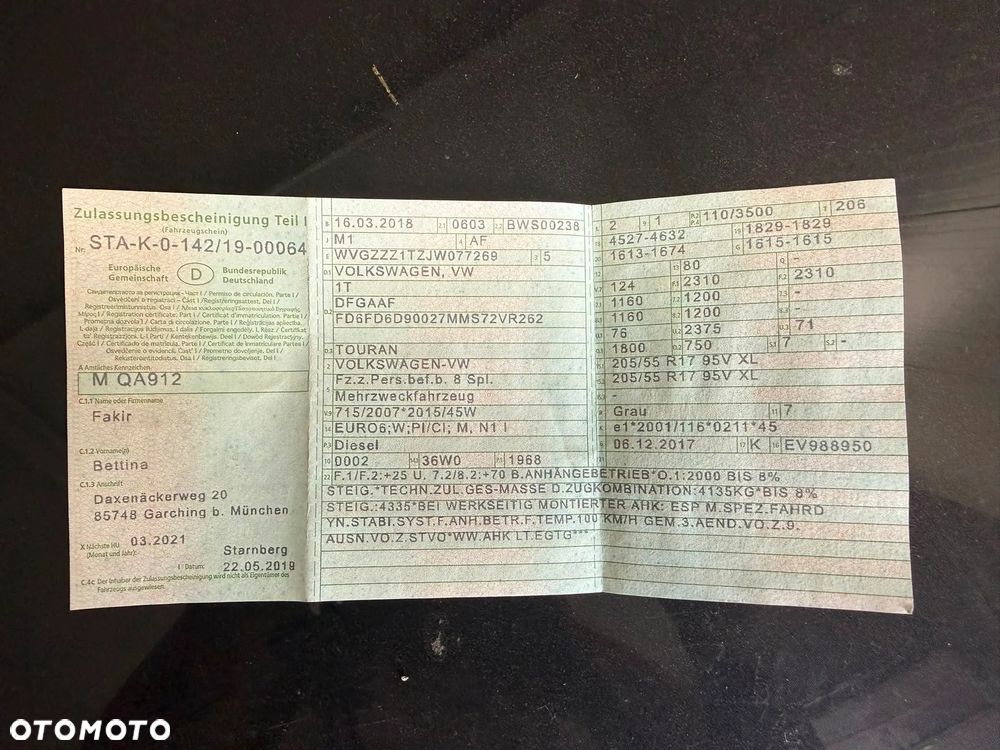 Zulassungsbescheinigung Teil I
(Fahrzeugschein)
Nr. STA-K-0-142/19-00064
Europäische Gemeinschaft
D
Bundesrepublik Deutschland
A Amtliches Kennzeichen
M QA912
C.1.1 Name oder Firmenname
Fakir
C.1.2 Vorname(n)
Bettina
C.1.3 Anschrift
Daxenäckerweg 20
85748 Garching b. München
X Nächste HU (Monat und Jahr): 03.2021
Starnberg
I Datum: 22.05.2019
C.4c Der Inhaber der Zulassungsbescheinigung wird nicht als Eigentümer des
Fahrzeugs ausgewiesen.
B 16.03.2018 2.1 0603 2.2 BWS00238
J M1 4 AF
E WVGZZZ1TZJW077269 3 5
VOLKSWAGEN, VW
1T
DFGAAF
D.2
FD6FD6D90027MMS72VR262
D.3 TOURAN
2 VOLKSWAGEN-VW
5 Fz.z.Pers.bef.b. 8 Spl.
Mehrzweckfahrzeug
V.9 715/2007*2015/45W
14 EURO6;W;PI/CI; M, N1 I
P.3 Diesel
10 0002 36W0 P.1 1968
22 F.1/F.2:+25 U. 7.2/8.2:+70 B.ANHÄNGEBETRIEB*O.1:2000 BIS 8%
STEIG.*TECHN.ZUL.GES-MASSE D.ZUGKOMBINATION:4135KG*BIS 8%
STEIG.:4335*BEI WERKSEITIG MONTIERTER AHK: ESP M.SPEZ.FAHRD
YN.STABI.SYST.F.ANH.BETR.F.TEMP.100 KM/H GEM.3.AEND.VO.Z.9.
AUSN.VO.Z.STVO*WW.AHK LT.EGTG***
L 2 9 1 P.2 P.4 110/3500 T 206
18 4527-4632 19 1829-1829
20 1613-1674 G 1615-1615
13 80 Q -
124 F.1 2310 F.2 2310
1160 7.2 1200 7.3 -
1160 8.2 1200 8.3 -
76 U.2 2375 U.3 71
O.1 1800 O.2 750 S.1 7 S.2 -
205/55 R17 95V XL
205/55 R17 95V XL
-
R Grau 11 7
e1*2001/116*0211*45
6 06.12.2017 17 K 16 EV988950
OTOMOTO